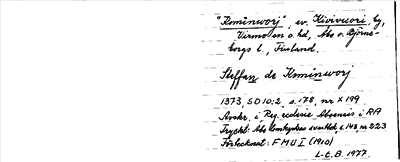 "Kominworj", ev. Kivivuori, by,
Virmo en o. hd, Åbo o. Björne-
borgs l., Finland.
Steffan de Kominworj
1373 SD 10:2, s. 178, nr X 199
Avskr. i Reg. ecclesie Aboensis i RA
Tryckt: Åbo Domkyrkas svartbok s. 148, nr 223
Förtecknat: FMU I (1910)
L-E.B. 1977.